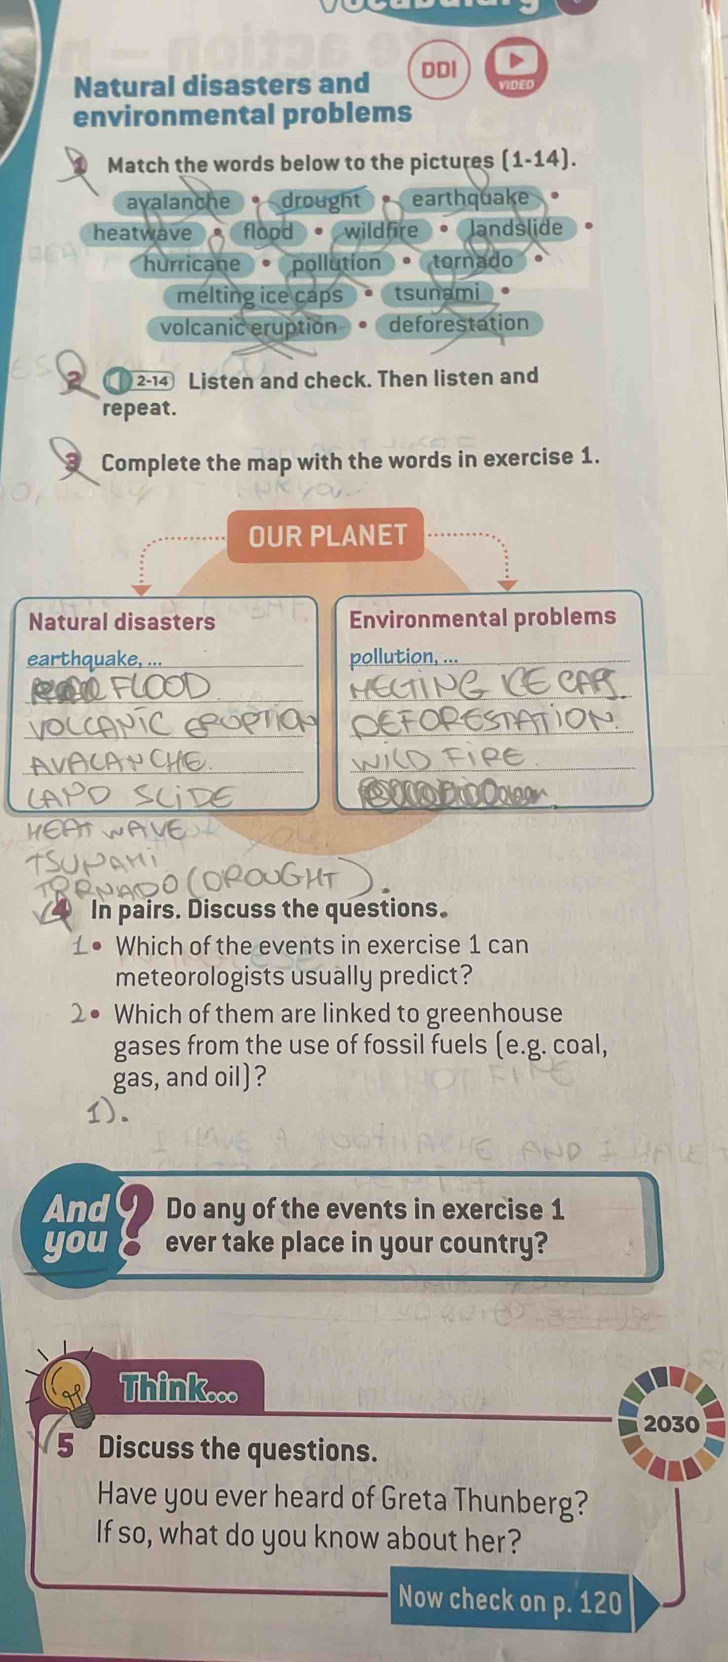 Natural disasters and
environmental problems
DDI
VIDEO
1 Match the words below to the pictures (1-14).
avalanche • drought • earthquake •
heatwave • flood • wildfire • landslide •
hurricane • pollution • tornado •
melting ice caps • tsunami •
volcanic eruption • deforestation
2 2-14 Listen and check. Then listen and
repeat.
3 Complete the map with the words in exercise 1.
OUR PLANET
Natural disasters
earthquake, ...
FLOOD
VOLCANIC ERUPTION
AVALANCHE.
LAND SLIDE
HEAT WAVE
TSUNAMI
TORNADO (DROUGHT).
Environmental problems
pollution, ...
MELTING ICE CAPS.
DEFORESTATION.
WILD FIRE
4 In pairs. Discuss the questions.
1 • Which of the events in exercise 1 can
meteorologists usually predict?
2 • Which of them are linked to greenhouse
gases from the use of fossil fuels (e.g. coal,
gas, and oil)?
1).
And you?
Do any of the events in exercise 1
ever take place in your country?
Think...
2030
5 Discuss the questions.
Have you ever heard of Greta Thunberg?
If so, what do you know about her?
Now check on p. 120